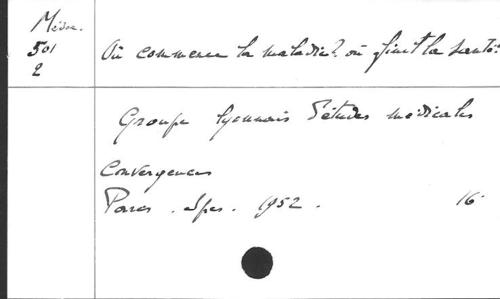 Médec.
501
2
Où commence la maladie? où finit la santé?
Groupe lyonnais d'études médicales
Convergences
Paris. Spes. 1952.
16°